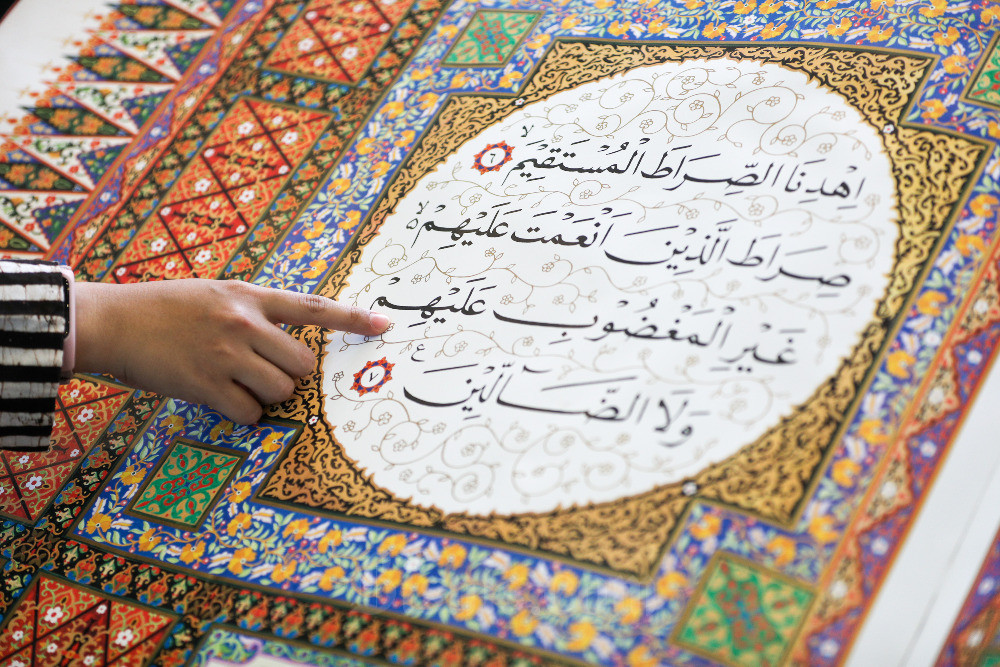 اِهْدِنَا الصِّرَاطَ الْمُسْتَقِيْمَ ۙ ٦
صِرَاطَ الَّذِيْنَ اَنْعَمْتَ عَلَيْهِمْ ۙ ە
غَيْرِ الْمَغْضُوْبِ عَلَيْهِمْ
وَلَا الضَّاۤلِّيْنَ ع ٧